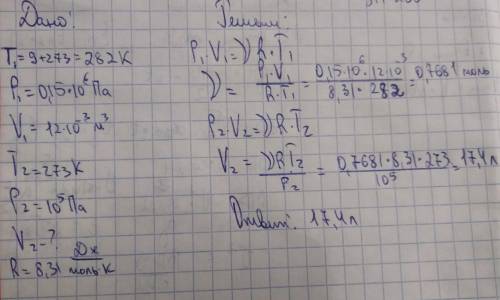 Дано:
T₁=9+273=282K
P₁=0,15·10⁶ Па
V₁=12·10⁻³ м³
T₂=273K
P₂=10⁵ Па
V₂-?
R=8,31 Дж/моль·К
Решение:
P₁·V₁=νR·T₁
ν=P₁·V₁/R·T₁=0,15·10⁶·12·10⁻³/8,31·282=0,7681 моль
P₂·V₂=νR·T₂
V₂=νRT₂/P₂=0,7681·8,31·273/10⁵=17,4л
Ответ: 17,4л